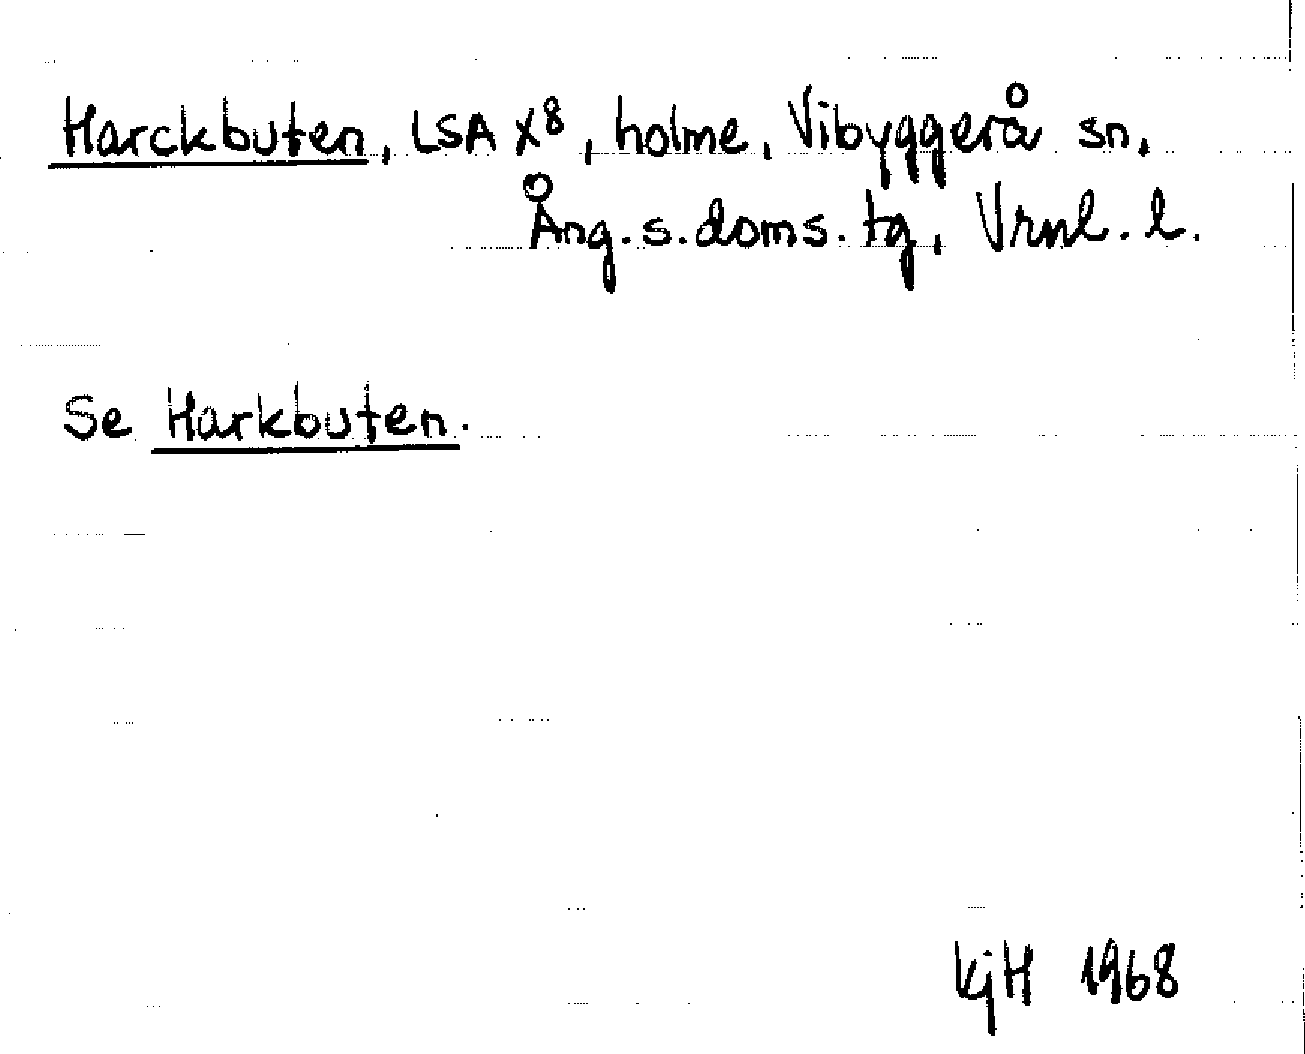 Harckbuten, LSA X8, holme, Vibyggerå sn,
Ång.s.doms.tg, Vrnl.l.
Se Harkbuten.
KjH 1968